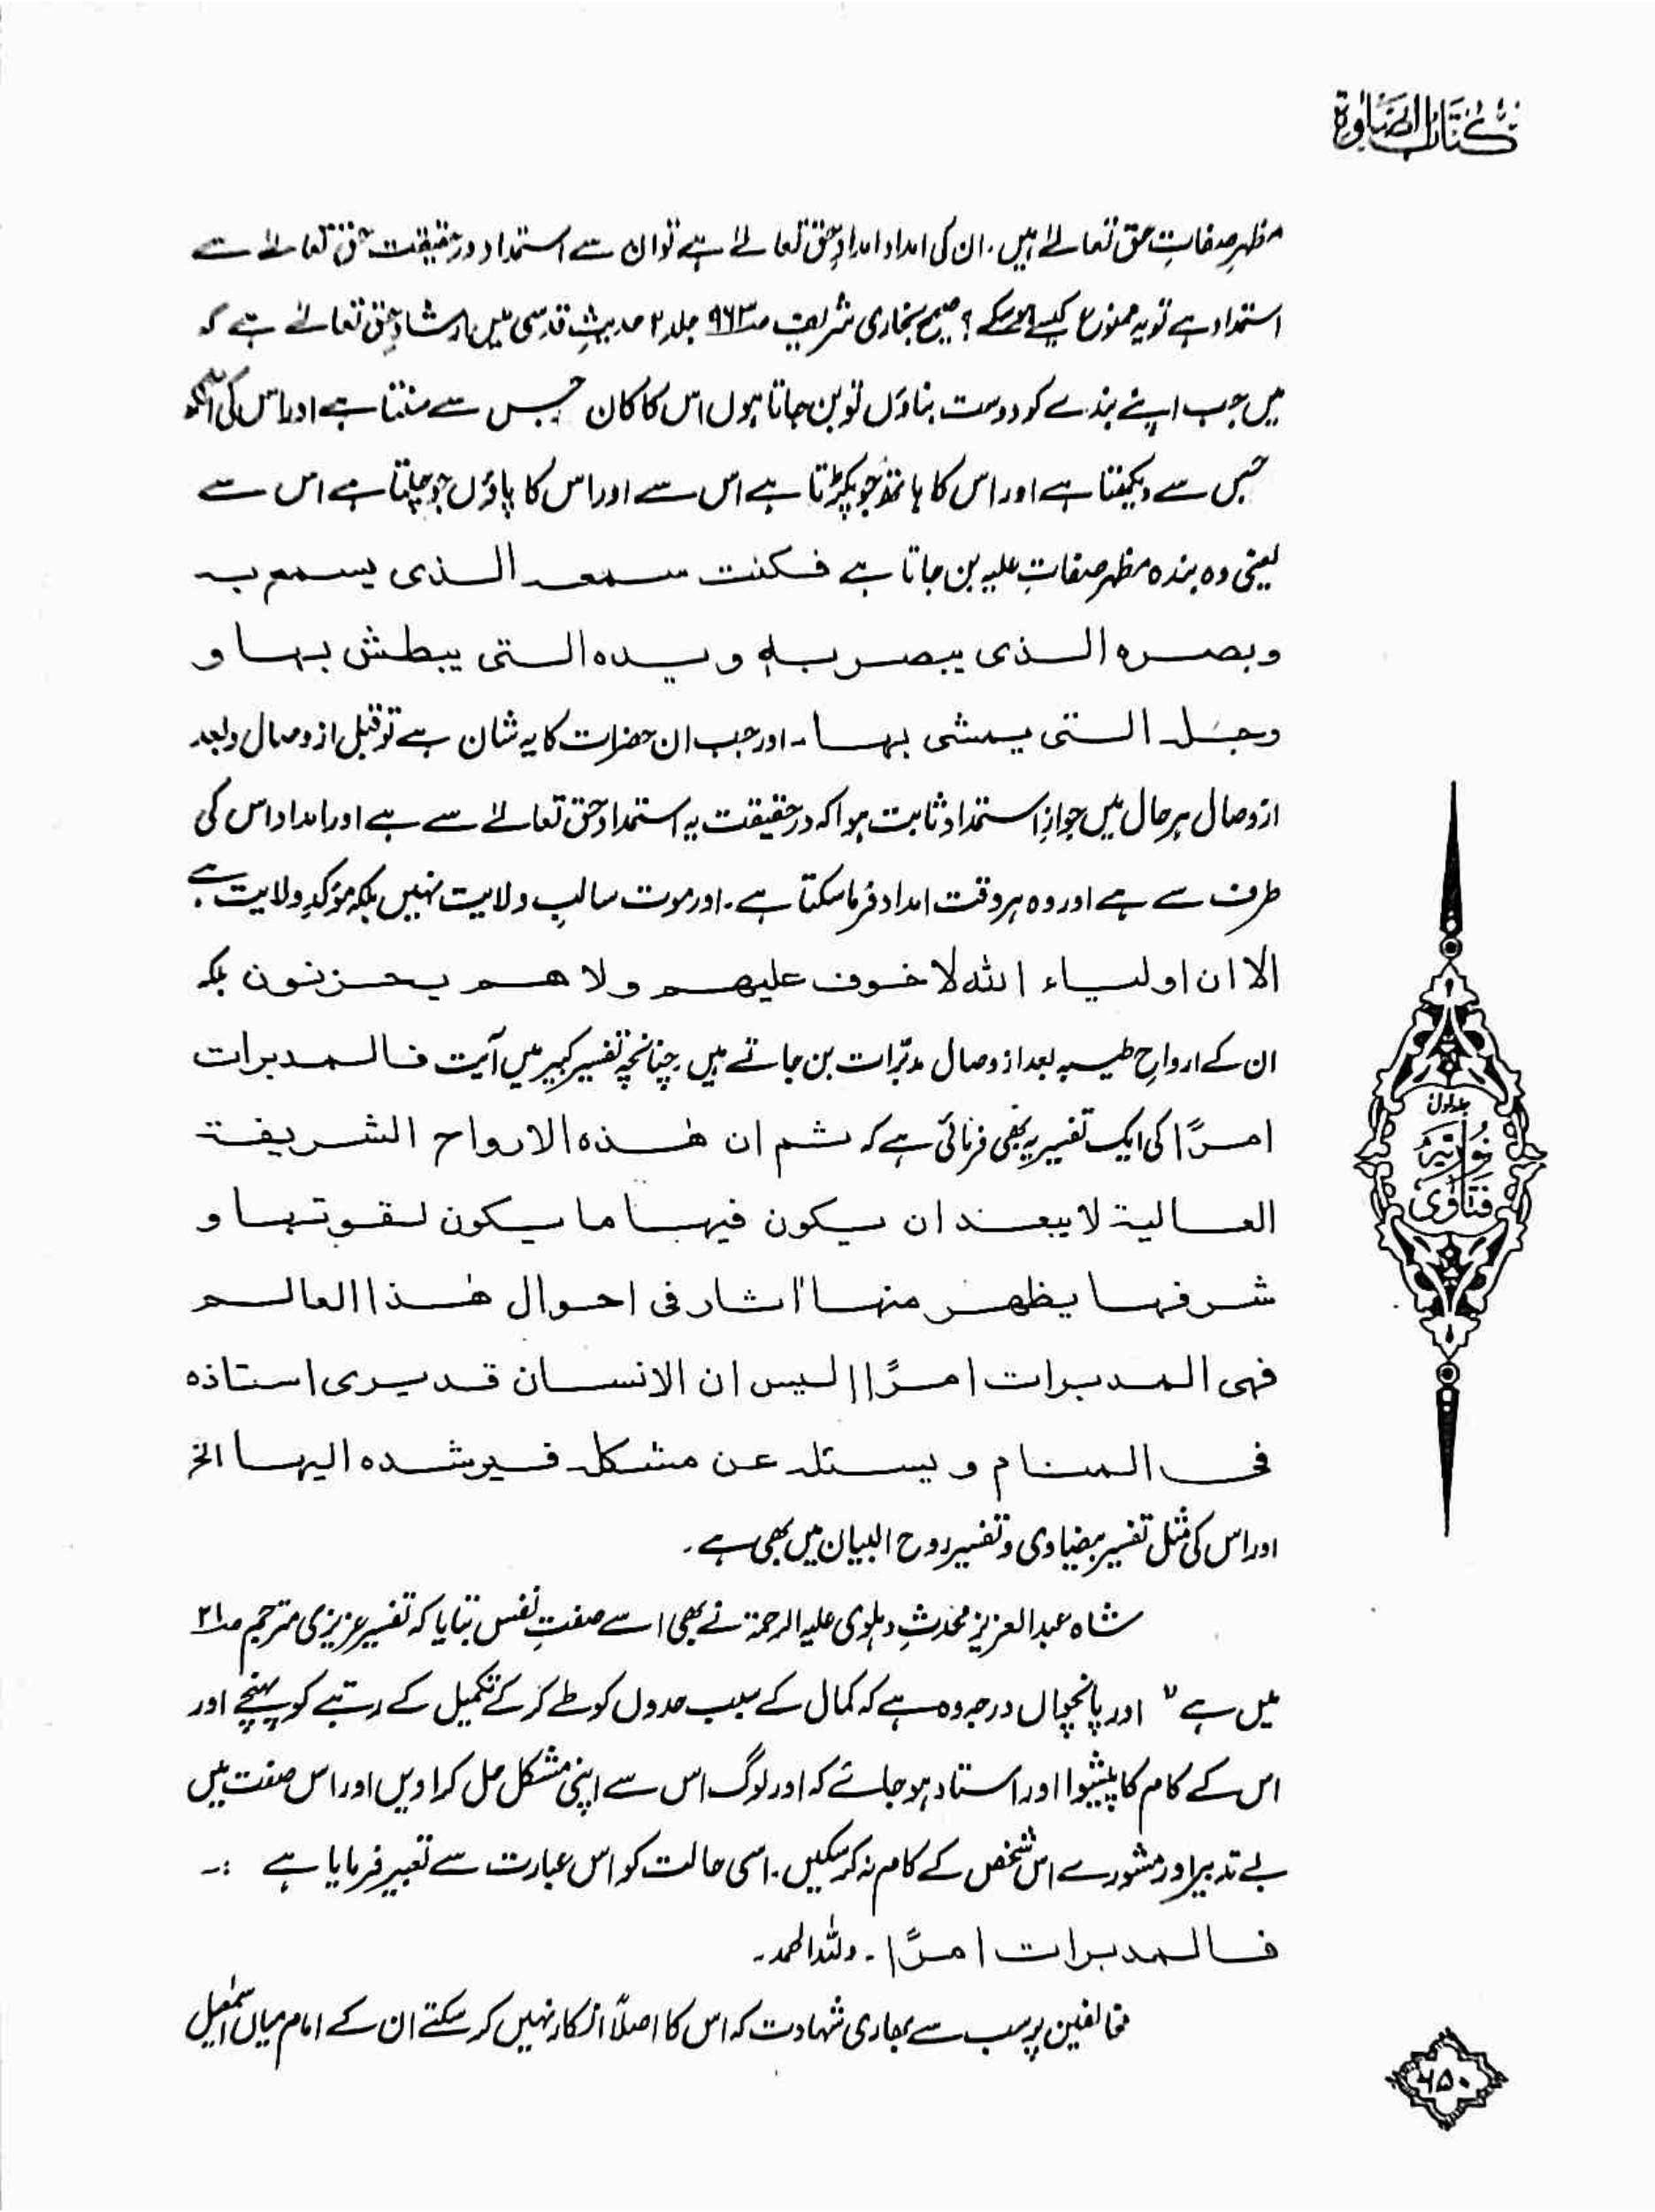 كتاب الصلوة
مظہرِ صفاتِ حق تعالےٰ ہیں۔ ان کی امداد امدادِ حق تعالےٰ ہے تو ان سے استمداد درحقیقت حق تعالےٰ سے
استمداد ہے تو یہ ممنوع کیسے ہو سکے؟ صحیح بخاری شریف صـ۹۶۳ جلد ۲ حدیثِ قدسی میں ارشادِ حق تعالےٰ ہے کہ
میں جب اپنے بندے کو دوست بناؤں تو بن جاتا ہوں اس کا کان جس سے سنتا ہے اور اس کی آنکھ
جس سے دیکھتا ہے اور اس کا ہاتھ جو پکڑتا ہے اس سے اور اس کا پاؤں جو چلتا ہے اس سے
یعنی وہ بندہ مظہر صفاتِ علیہ بن جاتا ہے فكنت سمعه الذى يسمع به
وبصره الذى يبصر به ويده التى يبطش بها و
رجله التى يمشى بها۔ اور جب ان حضرات کا یہ شان ہے تو قبل از وصال وبعد
از وصال ہر حال میں جوازِ استمداد ثابت ہوا کہ درحقیقت یہ استمداد حق تعالےٰ سے ہے اور امداد اس کی
طرف سے ہے اور وہ ہر وقت امداد فرما سکتا ہے۔ اور موت سالبِ ولایت نہیں بلکہ مؤکدِ ولایت ہے۔
الا ان اولياء الله لا خوف عليهم ولا هم يحزنون بلکہ
ان کے ارواحِ طیبہ بعد از وصال مدبّرات بن جاتے ہیں چنانچہ تفسیر کبیر میں آیت فالمدبرات
امرًا کی ایک تفسیر یہ بھی فرمائی ہے کہ ثم ان هٰذه الارواح الشريفة
العالية لا يبعد ان يكون فيها ما يكون لقوتها و
شرفها يظهر منها اٰثار فى احوال هٰذا العالم
فهى المدبرات امرًا اليس ان الانسان قد يرى استاذه
فى المنام ويسئله عن مشكلة فيرشده اليها الخ
اور اس کی مثل تفسیر بیضاوی و تفسیر روح البیان میں بھی ہے۔
شاہ عبدالعزیز محدثِ دہلوی علیہ الرحمۃ نے بھی اسے صفتِ نفس بتایا کہ تفسیر عزیزی مترجم صـ۲۱
میں ہے " اور پانچواں درجہ وہ ہے کہ کمال کے سبب حدوں کو طے کر کے تکمیل کے رتبے کو پہنچے اور
اس کے کام کا پیشوا اور استاد ہو جائے کہ اور لوگ اس سے اپنی مشکل حل کراویں اور اس صفت میں
بے تدبیر اور مشورے اس شخص کے کام نہ کر سکیں۔ اسی حالت کو اس عبارت سے تعبیر فرمایا ہے :۔
فالمدبرات امرًا۔ وللہ الحمد۔
مخالفین پر سب سے بھاری شہادت کہ اس کا اصلاً انکار نہیں کر سکتے ان کے امام میاں اسمٰعیل
جلد اول
نوریہ
فتاوٰی
۶۵۰